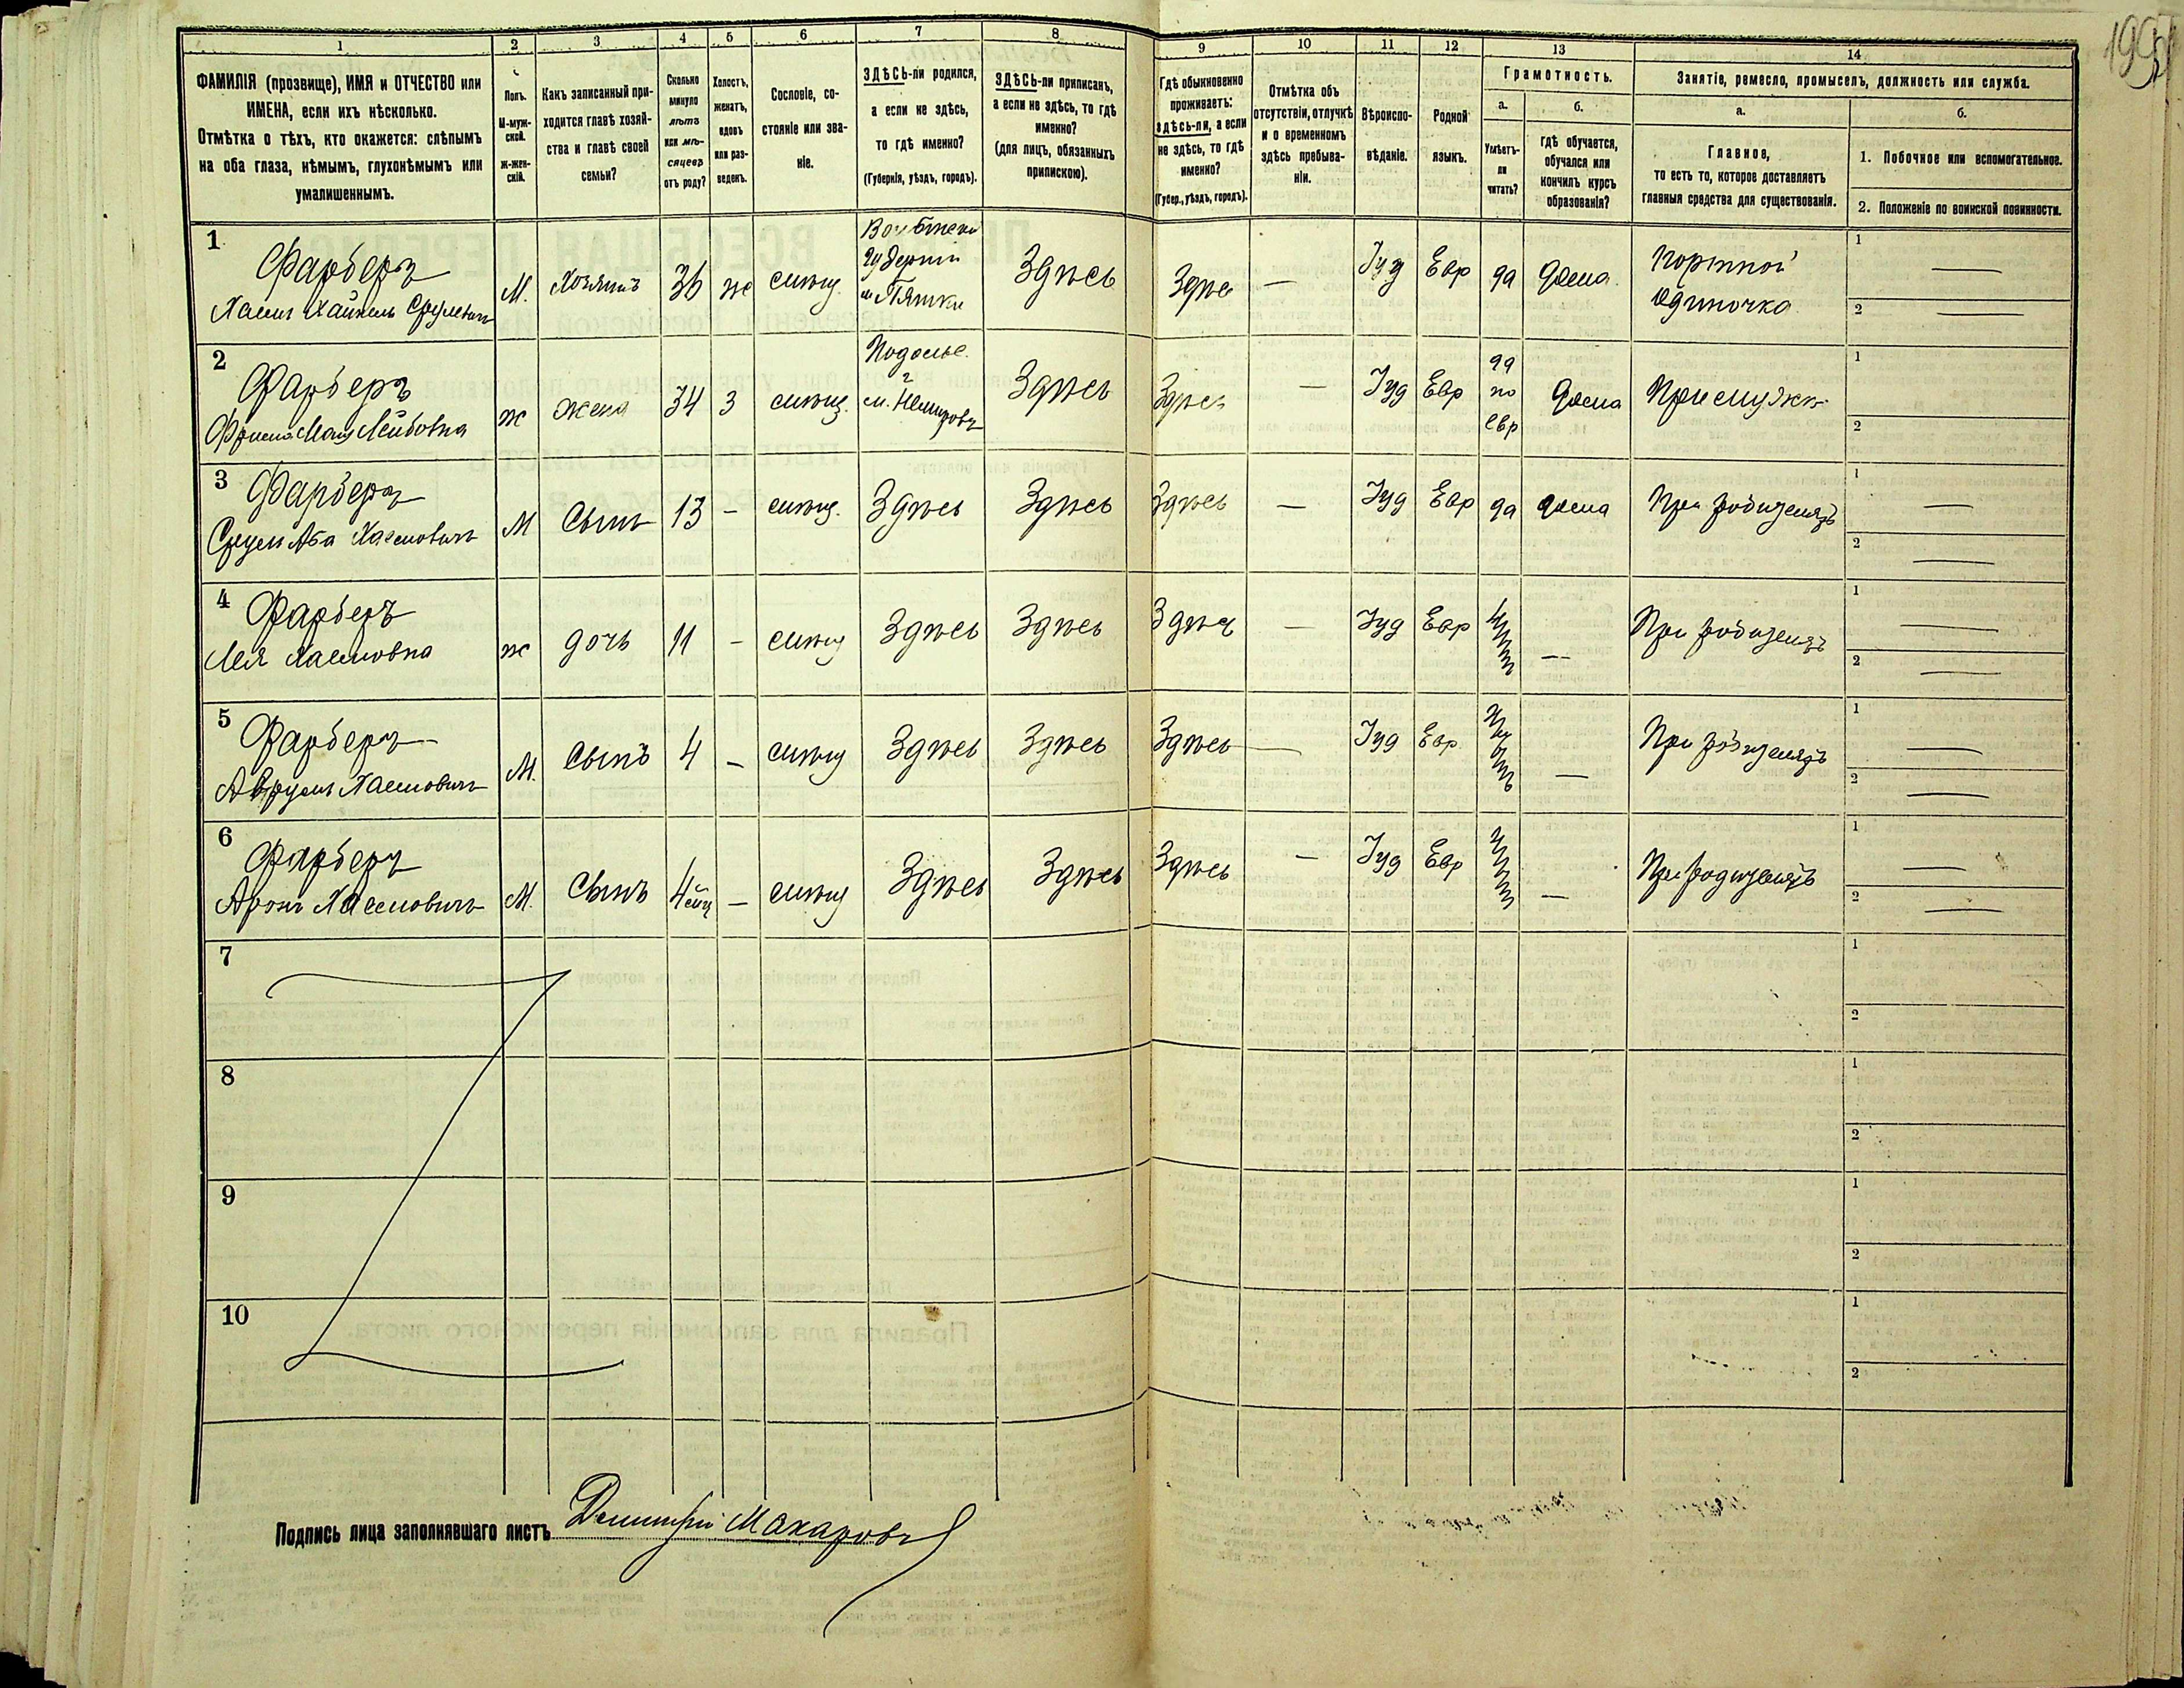 199
1 2 3 4 5 6 7 8 9 10 11 12 13 14
ФАМИЛІЯ (прозвище), ИМЯ и ОТЧЕСТВО или
ИМЕНА, если ихъ нѣсколько.
Отмѣтка о тѣхъ, кто окажется: слѣпымъ
на оба глаза, нѣмымъ, глухонѣмымъ или
умалишеннымъ.
Полъ.
М-муж-
ской.
Ж-жен-
скій.
Какъ записанный при-
ходится главѣ хозяй-
ства и главѣ своей
семьи?
Сколько
минуло
лѣтъ
или мѣ-
сяцевъ
отъ роду?
Холостъ,
женатъ,
вдовъ
или раз-
веденъ.
Сословіе, со-
стояніе или зва-
ніе.
ЗДѢСЬ-ли родился,
а если не здѣсь,
то гдѣ именно?
(Губернія, уѣздъ, городъ).
ЗДѢСЬ-ли приписанъ,
а если не здѣсь, то гдѣ
именно?
(для лицъ, обязанныхъ
припискою).
Гдѣ обыкновенно
проживаетъ:
здѣсь-ли, а если
не здѣсь, то гдѣ
именно?
(Губер., уѣздъ, городъ).
Отмѣтка объ
отсутствіи, отлучкѣ
и о временномъ
здѣсь пребыва-
ніи.
Вѣроиспо-
вѣданіе.
Родной
языкъ.
Грамотность.
а.
Умѣетъ-
ли
читать?
б.
гдѣ обучается,
обучался или
кончилъ курсъ
образованія?
Занятіе, ремесло, промыселъ, должность или служба.
а.
Главное,
то есть то, которое доставляетъ
главныя средства для существованія.
б.
1. Побочное или вспомогательное.
2. Положеніе по воинской повинности.
1
Фарберъ
Хаимъ Хайкель Срулевичъ
М. Хозяинъ 36 ж
Губерніи
м Пятки
Здѣсь Здѣсь — Іуд Евр да дома.
портной
одиночка
1 —
2 —
2
Фарберъ
Лейбовна
ж жена 34 3
Подольс.
г
м. Немировъ
Здѣсь Здѣсь — Іуд Евр
да
по
евр
дома При мужѣ
1
2
3
Фарберъ
Сруль Аба Хаимовичъ
М Сынъ 13 — Здѣсь Здѣсь Здѣсь — Іуд Евр да дома При родителяхъ
1 —
2 —
4
Фарберъ
Лея Хаимовна
ж дочь 11 — Здѣсь Здѣсь Здѣсь — Іуд Евр нѣтъ — При родителяхъ
1 —
2 —
5
Фарберъ
Аврумъ Хаимовичъ
М. Сынъ 4 — Здѣсь Здѣсь Здѣсь — Іуд Евр нѣтъ — При родителяхъ
1 —
2 —
6
Фарберъ
Аронъ Хаимовичъ
М. Сынъ 4 — Здѣсь Здѣсь Здѣсь — Іуд Евр нѣтъ — При родителяхъ
1 —
2 —
7
1
2
8
1
2
9
1
2
10
1
2
Подпись лица заполнявшаго листъ Дмитрій Макаровъ